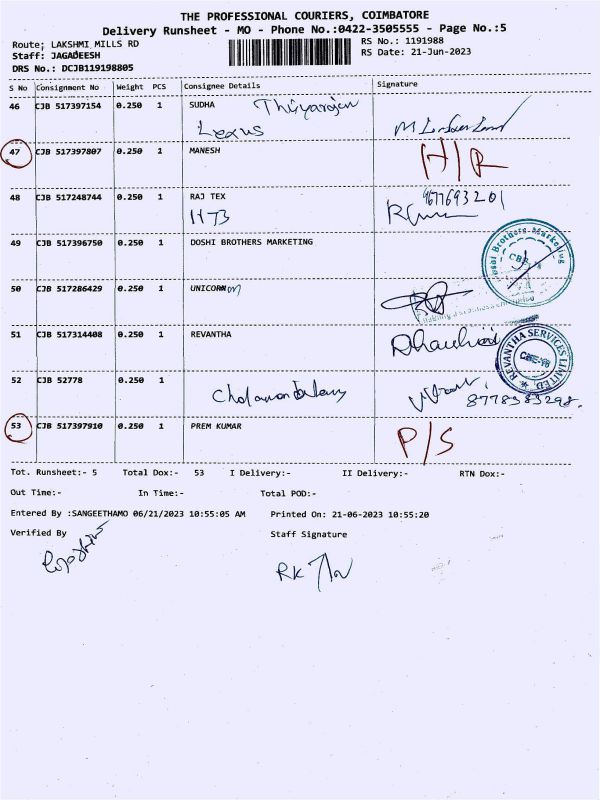 THE PROFESSIONAL COURIERS, COIMBATORE
Delivery Runsheet - MO - Phone No.:0422-3505555 - Page No.:5
Route; LAKSHMI MILLS RD
RS No.: 1191988
Staff: JAGADEESH
RS Date: 21-Jun-2023
DRS No.: DCJB119198805
S No Consignment No Weight PCS Consignee Details Signature
46 CJB 517397154 0.250 1 SUDHA
Lexus
47 CJB 517397807 0.250 1 MANESH H/R
48 CJB 517248744 0.250 1 RAJ TEX 9677693201
HTB
49 CJB 517396750 0.250 1 DOSHI BROTHERS MARKETING
Doshi Brothers Marketing
CBE
50 CJB 517286429 0.250 1 UNICORN
51 CJB 517314408 0.250 1 REVANTHA
REVANTHA SERVICES LIMITED
CBE-18
52 CJB 52778 0.250 1
8778383298
53 CJB 517397910 0.250 1 PREM KUMAR P/S
Tot. Runsheet:- 5 Total Dox:- 53 I Delivery:- II Delivery:- RTN Dox:-
Out Time:- In Time:- Total POD:-
Entered By :SANGEETHAMO 06/21/2023 10:55:05 AM Printed On: 21-06-2023 10:55:20
Verified By Staff Signature